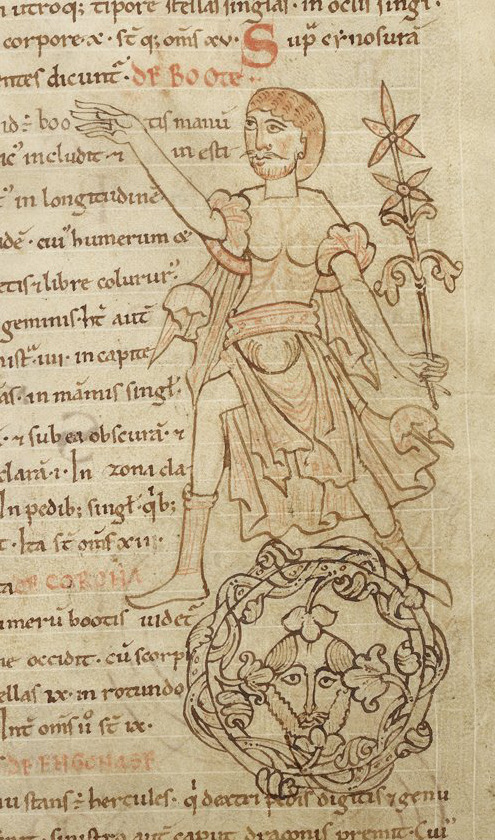 utroq; tipore stellas singlas · in oculis singl ·
corpore · x · st q; oms xv · Sup cynosura
entes dicunt · DE BOOTE
boo tis manu
includit in esti
in longitudine
cui' humerum
libre colurus
geminis · ht aut
iiii · in capite
in manus singl ·
· & sub ea obscura ·
clara · i · In zona cla
In pedib; singl · qb;
Ita st oms xii ·
DE CORONA
umeru bootis uidet
occidit · cu scorp
ellas ix · in rotundo
Int oms st ix ·
DE ENGONASE
stans hercules · q dextri pedis digitis & genu
sinistro aut caput draconis premit · Cui'